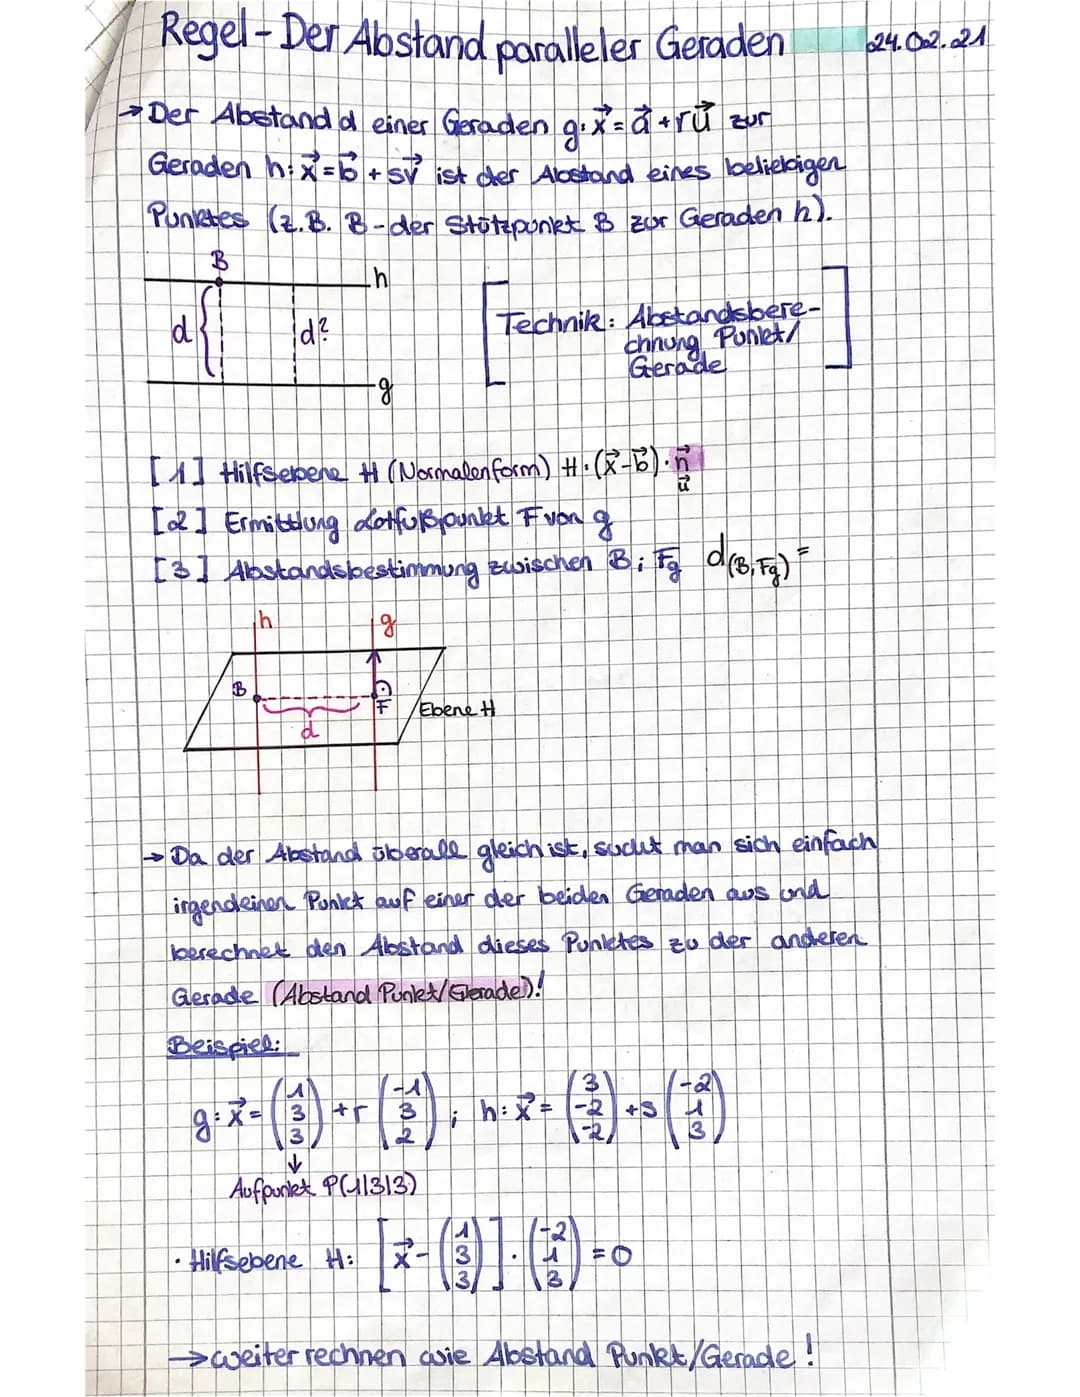 Regel - Der Abstand paralleler Geraden 24.02.21
→ Der Abstand d einer Geraden g: x⃗ = a⃗ + ru⃗ zur
Geraden h: x⃗ = b⃗ + sv⃗ ist der Abstand eines beliebigen
Punktes (z.B. B - der Stützpunkt B zur Geraden h).
B
h
d
d?
g
[Technik: Abstandsbere-
chnung Punkt/
Gerade]
[1] Hilfsebene H (Normalenform) H: (x⃗ - b⃗) · n⃗
u⃗
[2] Ermittlung Lotfußpunkt F von g
[3] Abstandsbestimmung zwischen B; Fg d(B, Fg) =
h g
B
F
Ebene H
d
→ Da der Abstand überall gleich ist, sucht man sich einfach
irgendeinen Punkt auf einer der beiden Geraden aus und
berechnet den Abstand dieses Punktes zu der anderen
Gerade (Abstand Punkt/Gerade)!
Beispiel:
g: x⃗ = (1 3 3) + r (-1 3 2) ; h: x⃗ = (3 -2 -2) + s (-2 1 3)
↓
Aufpunkt P(1|3|3)
· Hilfsebene H: [x⃗ - (1 3 3)] · (-2 1 3) = 0
→ weiter rechnen wie Abstand Punkt/Gerade!